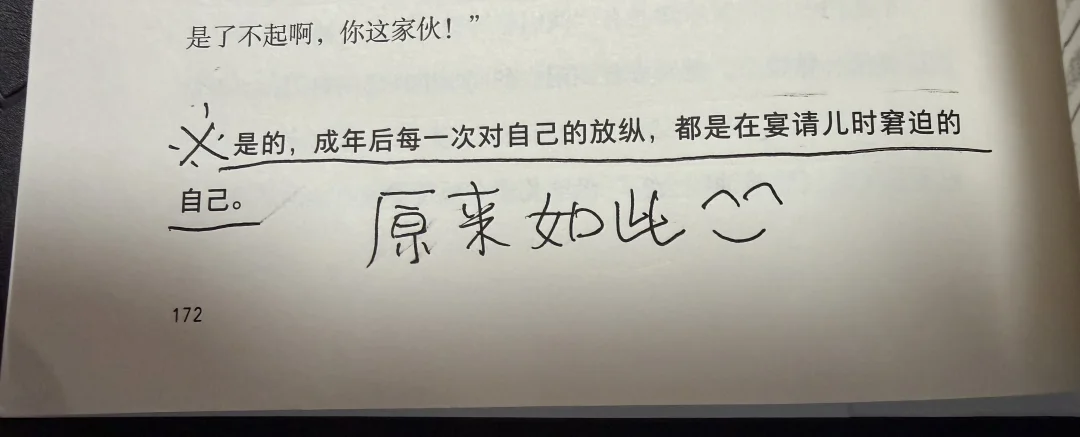 是了不起啊，你这家伙！”
※是的，成年后每一次对自己的放纵，都是在宴请儿时窘迫的
自己。
原来如此
172